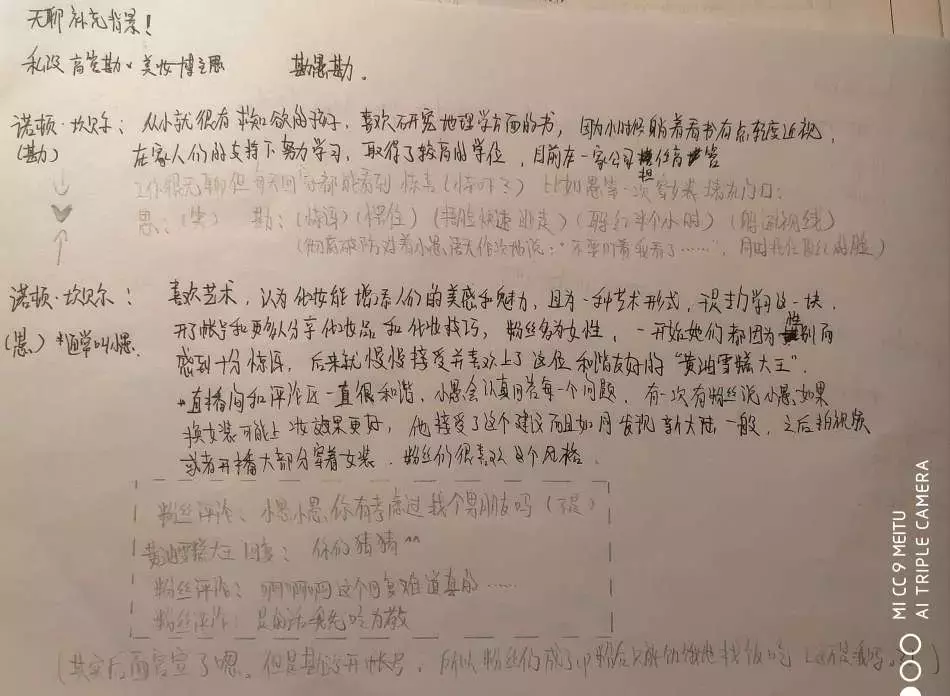 无聊补充背景!
私设 高管勘×美妆博主愚 勘愚勘.
诺顿·坎贝尔: 从小就很有求知欲的孩子, 喜欢研究地理学方面的书, 因为小时候躺着看书有点轻度近视.
(勘) 在家人们的支持下努力学习, 取得了较高的学位, 目前在一家公司担任高管
工作很无聊但每天回家都能看到惊喜(惊吓?) 比如愚第一次穿女装堵在门口:
愚: (笑) 勘: (惊讶) (愣住) (捂脸快速逃走) (聊了半个小时) (躲闪视线)
诺顿·坎贝尔: 喜欢艺术, 认为化妆能增添人们的美感和魅力, 且为一种艺术形式, 于是主力学习这一块.
(愚) *通常叫小愚. 开了帐号和更多人分享化妆品和化妆技巧, 粉丝多为女性. 一开始她们都因为性别而
感到十分惊讶, 后来就慢慢接受并喜欢上了这位和谐友好的“黄油雪糕大王”.
*直播间和评论区一直很和谐. 小愚会认真回答每一个问题. 有一次有粉丝说小愚如果
换女装可能上妆效果更好, 他接受了这个建议而且如同发现新大陆一般, 之后拍视频
或者开播大部分穿着女装. 粉丝们很喜欢这个风格.
粉丝评论: 小愚小愚你有考虑过找个男朋友吗(不是)
黄油雪糕大王回复: 你们猜猜^^
粉丝评论: 啊啊啊这个回复难道真的……
粉丝评论: 是的话我先吃为敬
(其实后面官宣了嗯. 但是勘没开帐号, 所以粉丝们成了cp粉后只能
MI CC 9 MEITU
AI TRIPLE CAMERA